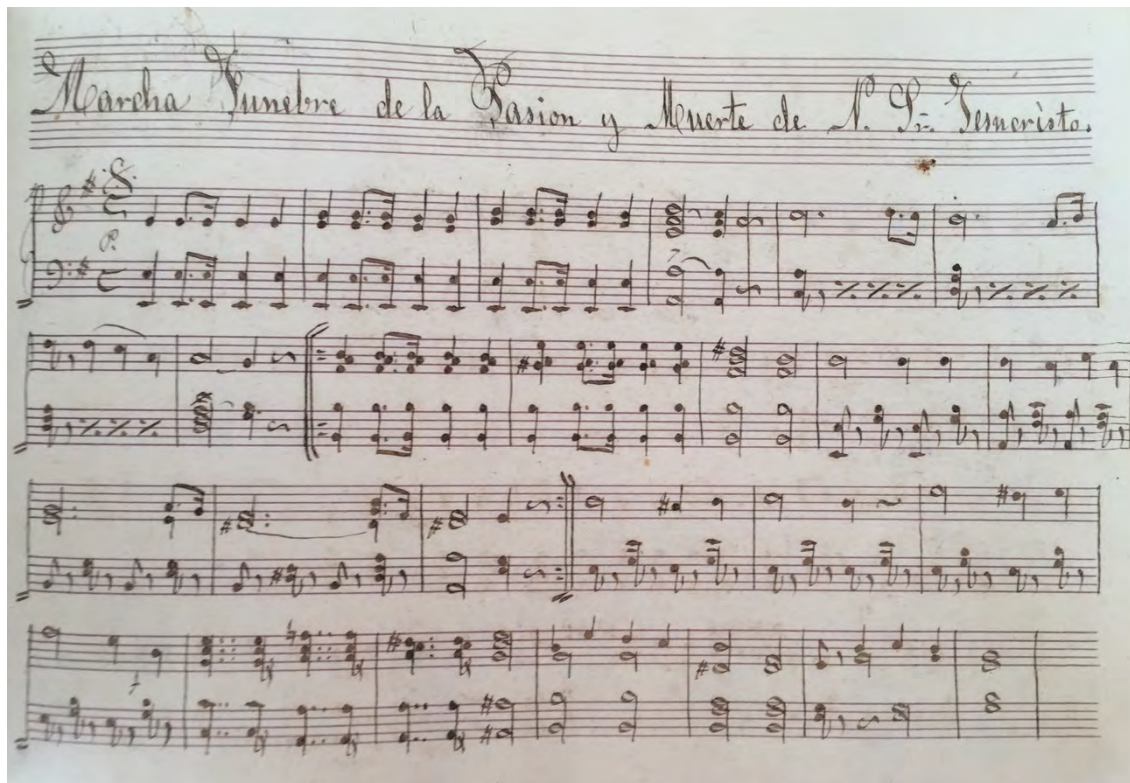 Marcha Funebre de la Pasion y Muerte de N. Sr. Jesucristo.
P.